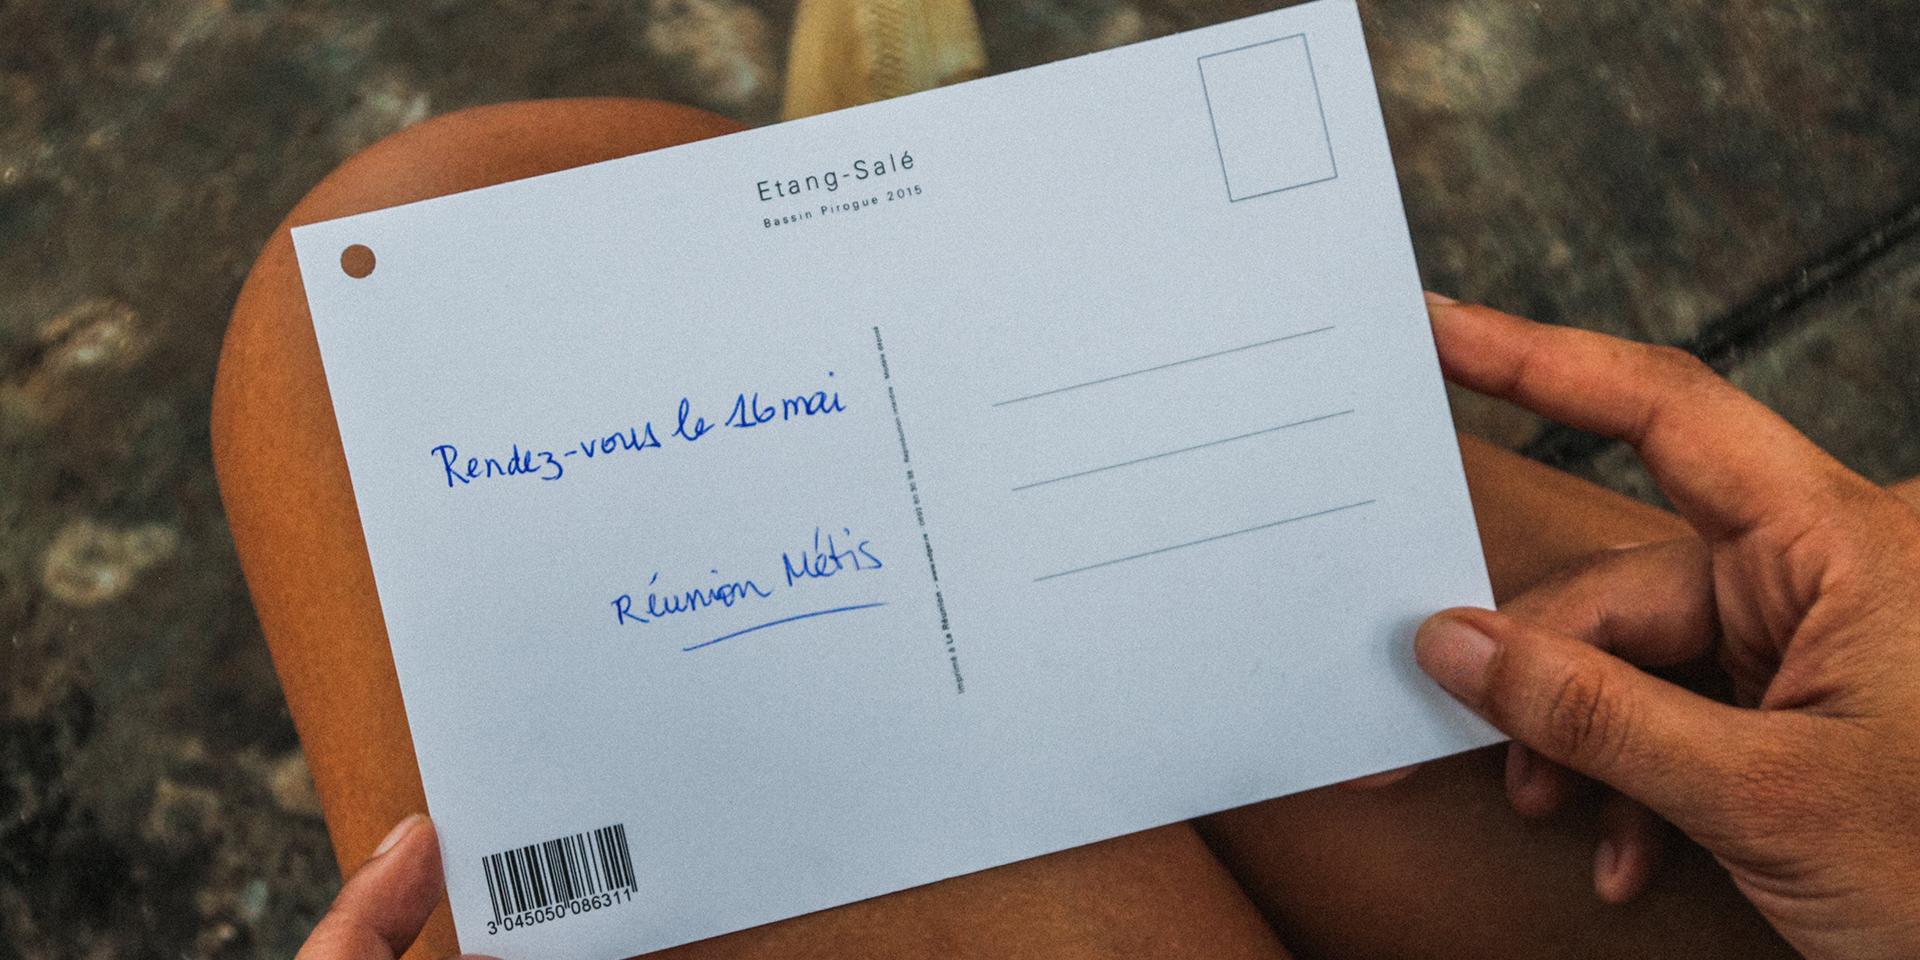 Etang-Salé
Bassin Pirogue 2015
Rendez-vous le 16 mai
Réunion Métis
Imprimé à La Réunion - Reproduction interdite Modèle déposé
3 045050 086311